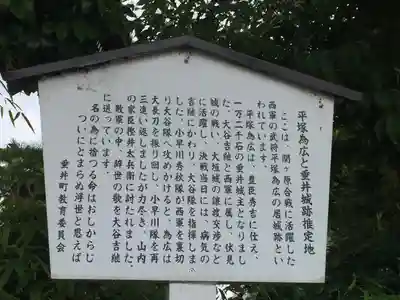 平塚為広と垂井城跡推定地
ここは、関ヶ原合戦に活躍した
西軍の武将平塚為広の居城跡とい
われています。
平塚為広は、豊臣秀吉に仕え、
一万二千石の垂井城主となりまし
た。大谷吉継と西軍に属し、伏見
城の戦い、大垣城の譲渡交渉など
に活躍し、決戦当日には、病気の
吉継にかわり、大谷隊を指揮しま
した。小早川秀秋隊が西軍を裏切
り大谷隊を攻めかけると、為広は
大長刀を振り回し、小早川隊を再
三追い返しましたが力尽き、山内
の家臣樫井太兵衛に討たれました。
敗軍の中、辞世の歌を大谷吉継
に送っています。
名の為に捨つる命はおしからじ
ついにとまらぬ浮世と思えば
垂井町教育委員会